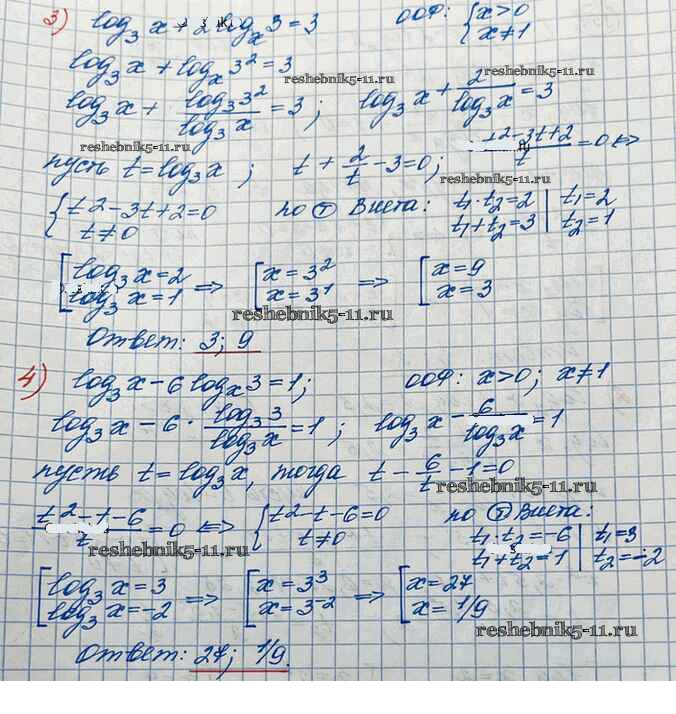 3) log₃ x + 2 log_x 3 = 3 ООФ: { x > 0 x ≠ 1
log₃ x + log_x 3² = 3 reshebnik5-11.ru
log₃ x + log₃ 3² / log₃ x = 3 ; log₃ x + 2 / log₃ x = 3
reshebnik5-11.ru
пусть t = log₃ x ; t + 2/t − 3 = 0 ; t² − 3t + 2 / t = 0 ⇔
reshebnik5-11.ru
{ t² − 3t + 2 = 0 t ≠ 0 по Т Виета: t₁ · t₂ = 2 t₁ + t₂ = 3 | t₁ = 2 t₂ = 1
[ log₃ x = 2 log₃ x = 1 ⇒ [ x = 3² x = 3¹ ⇒ [ x = 9 x = 3
reshebnik5-11.ru
Ответ: 3; 9
4) log₃ x − 6 log_x 3 = 1; ООФ: x > 0; x ≠ 1
log₃ x − 6 · log₃ 3 / log₃ x = 1 ; log₃ x − 6 / log₃ x = 1
пусть t = log₃ x, тогда t − 6/t − 1 = 0
t² − t − 6 / t = 0 ⇔ { t² − t − 6 = 0 t ≠ 0 по Т Виета: t₁ · t₂ = −6 t₁ + t₂ = 1 | t₁ = 3 t₂ = −2
reshebnik5-11.ru
[ log₃ x = 3 log₃ x = −2 ⇒ [ x = 3³ x = 3⁻² ⇒ [ x = 27 x = 1/9
reshebnik5-11.ru
Ответ: 27; 1/9.